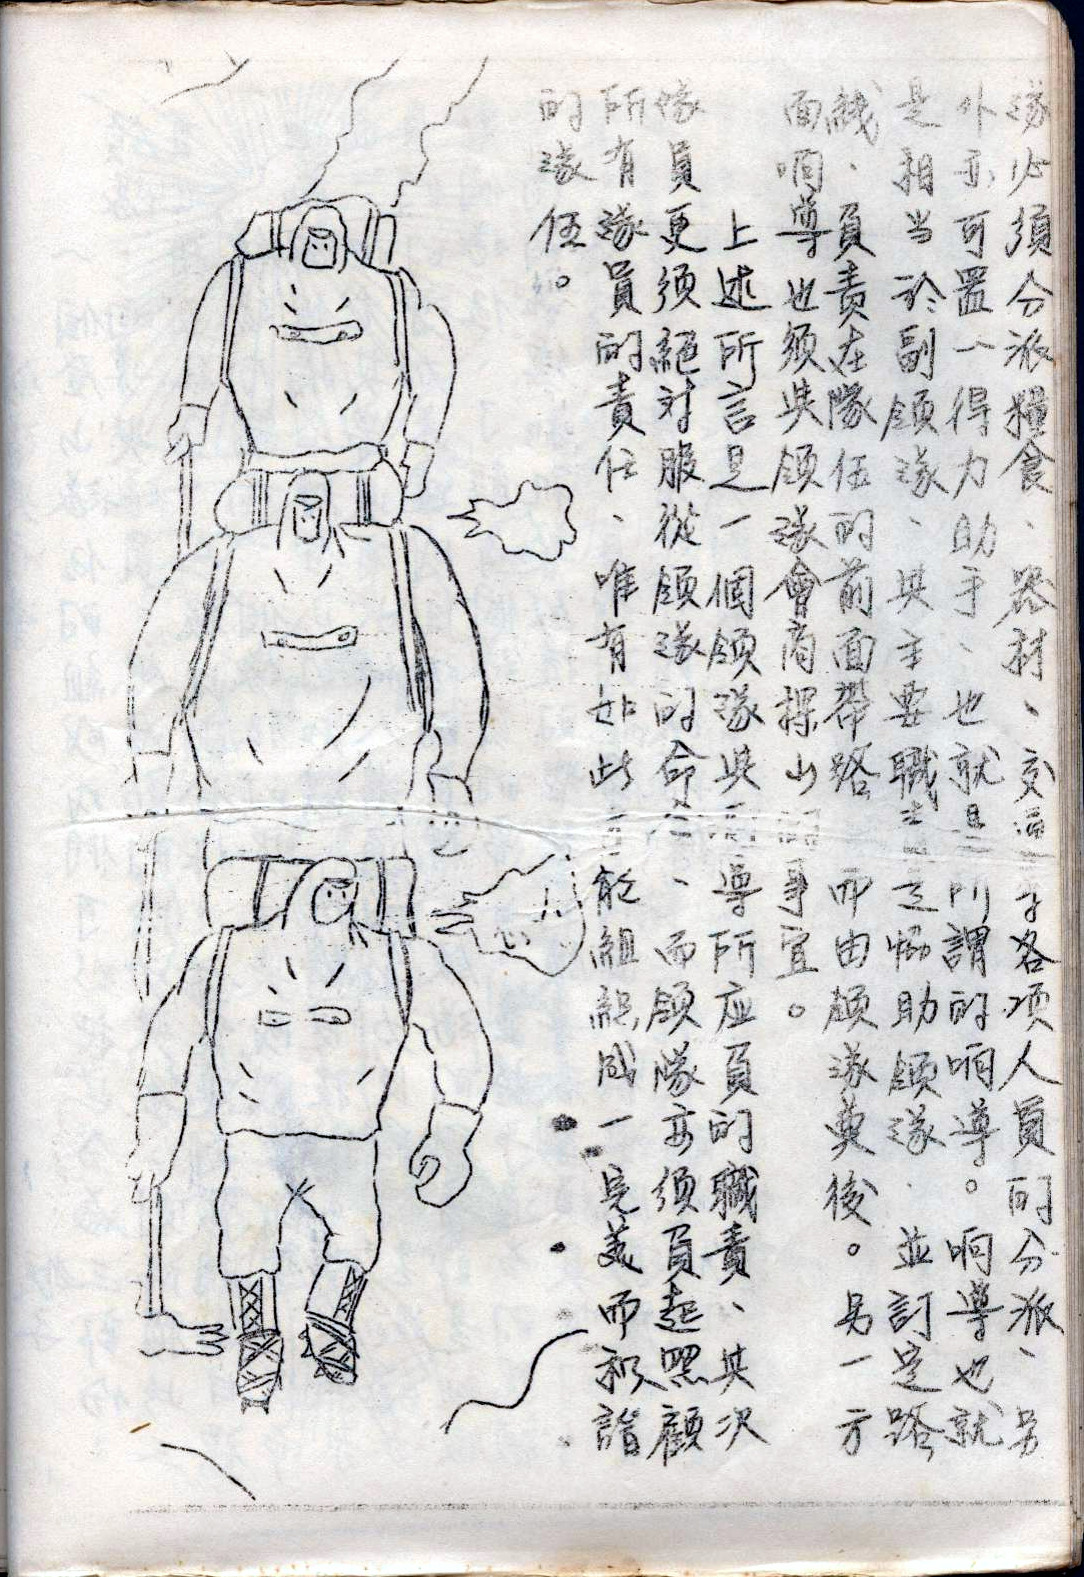 隊必須分派糧食、器材、交通等各項人員的分派、另
外亦可置一得力助手、也就是所謂的响導。响導也就
是相当於副領隊、其主要職責是協助領隊．並訂定路
綫．負責在隊伍的前面帶路 而由領隊奠後。另一方
面响導也須與領隊會商探山的事宜。
上述所言是一個領隊與响導所应負的職責、其次
隊員更須絕对服從領隊的命令、而領隊亦須負起照顧
所有隊員的責任、唯有如此 才能組織成一完美而和諧
的隊伍。